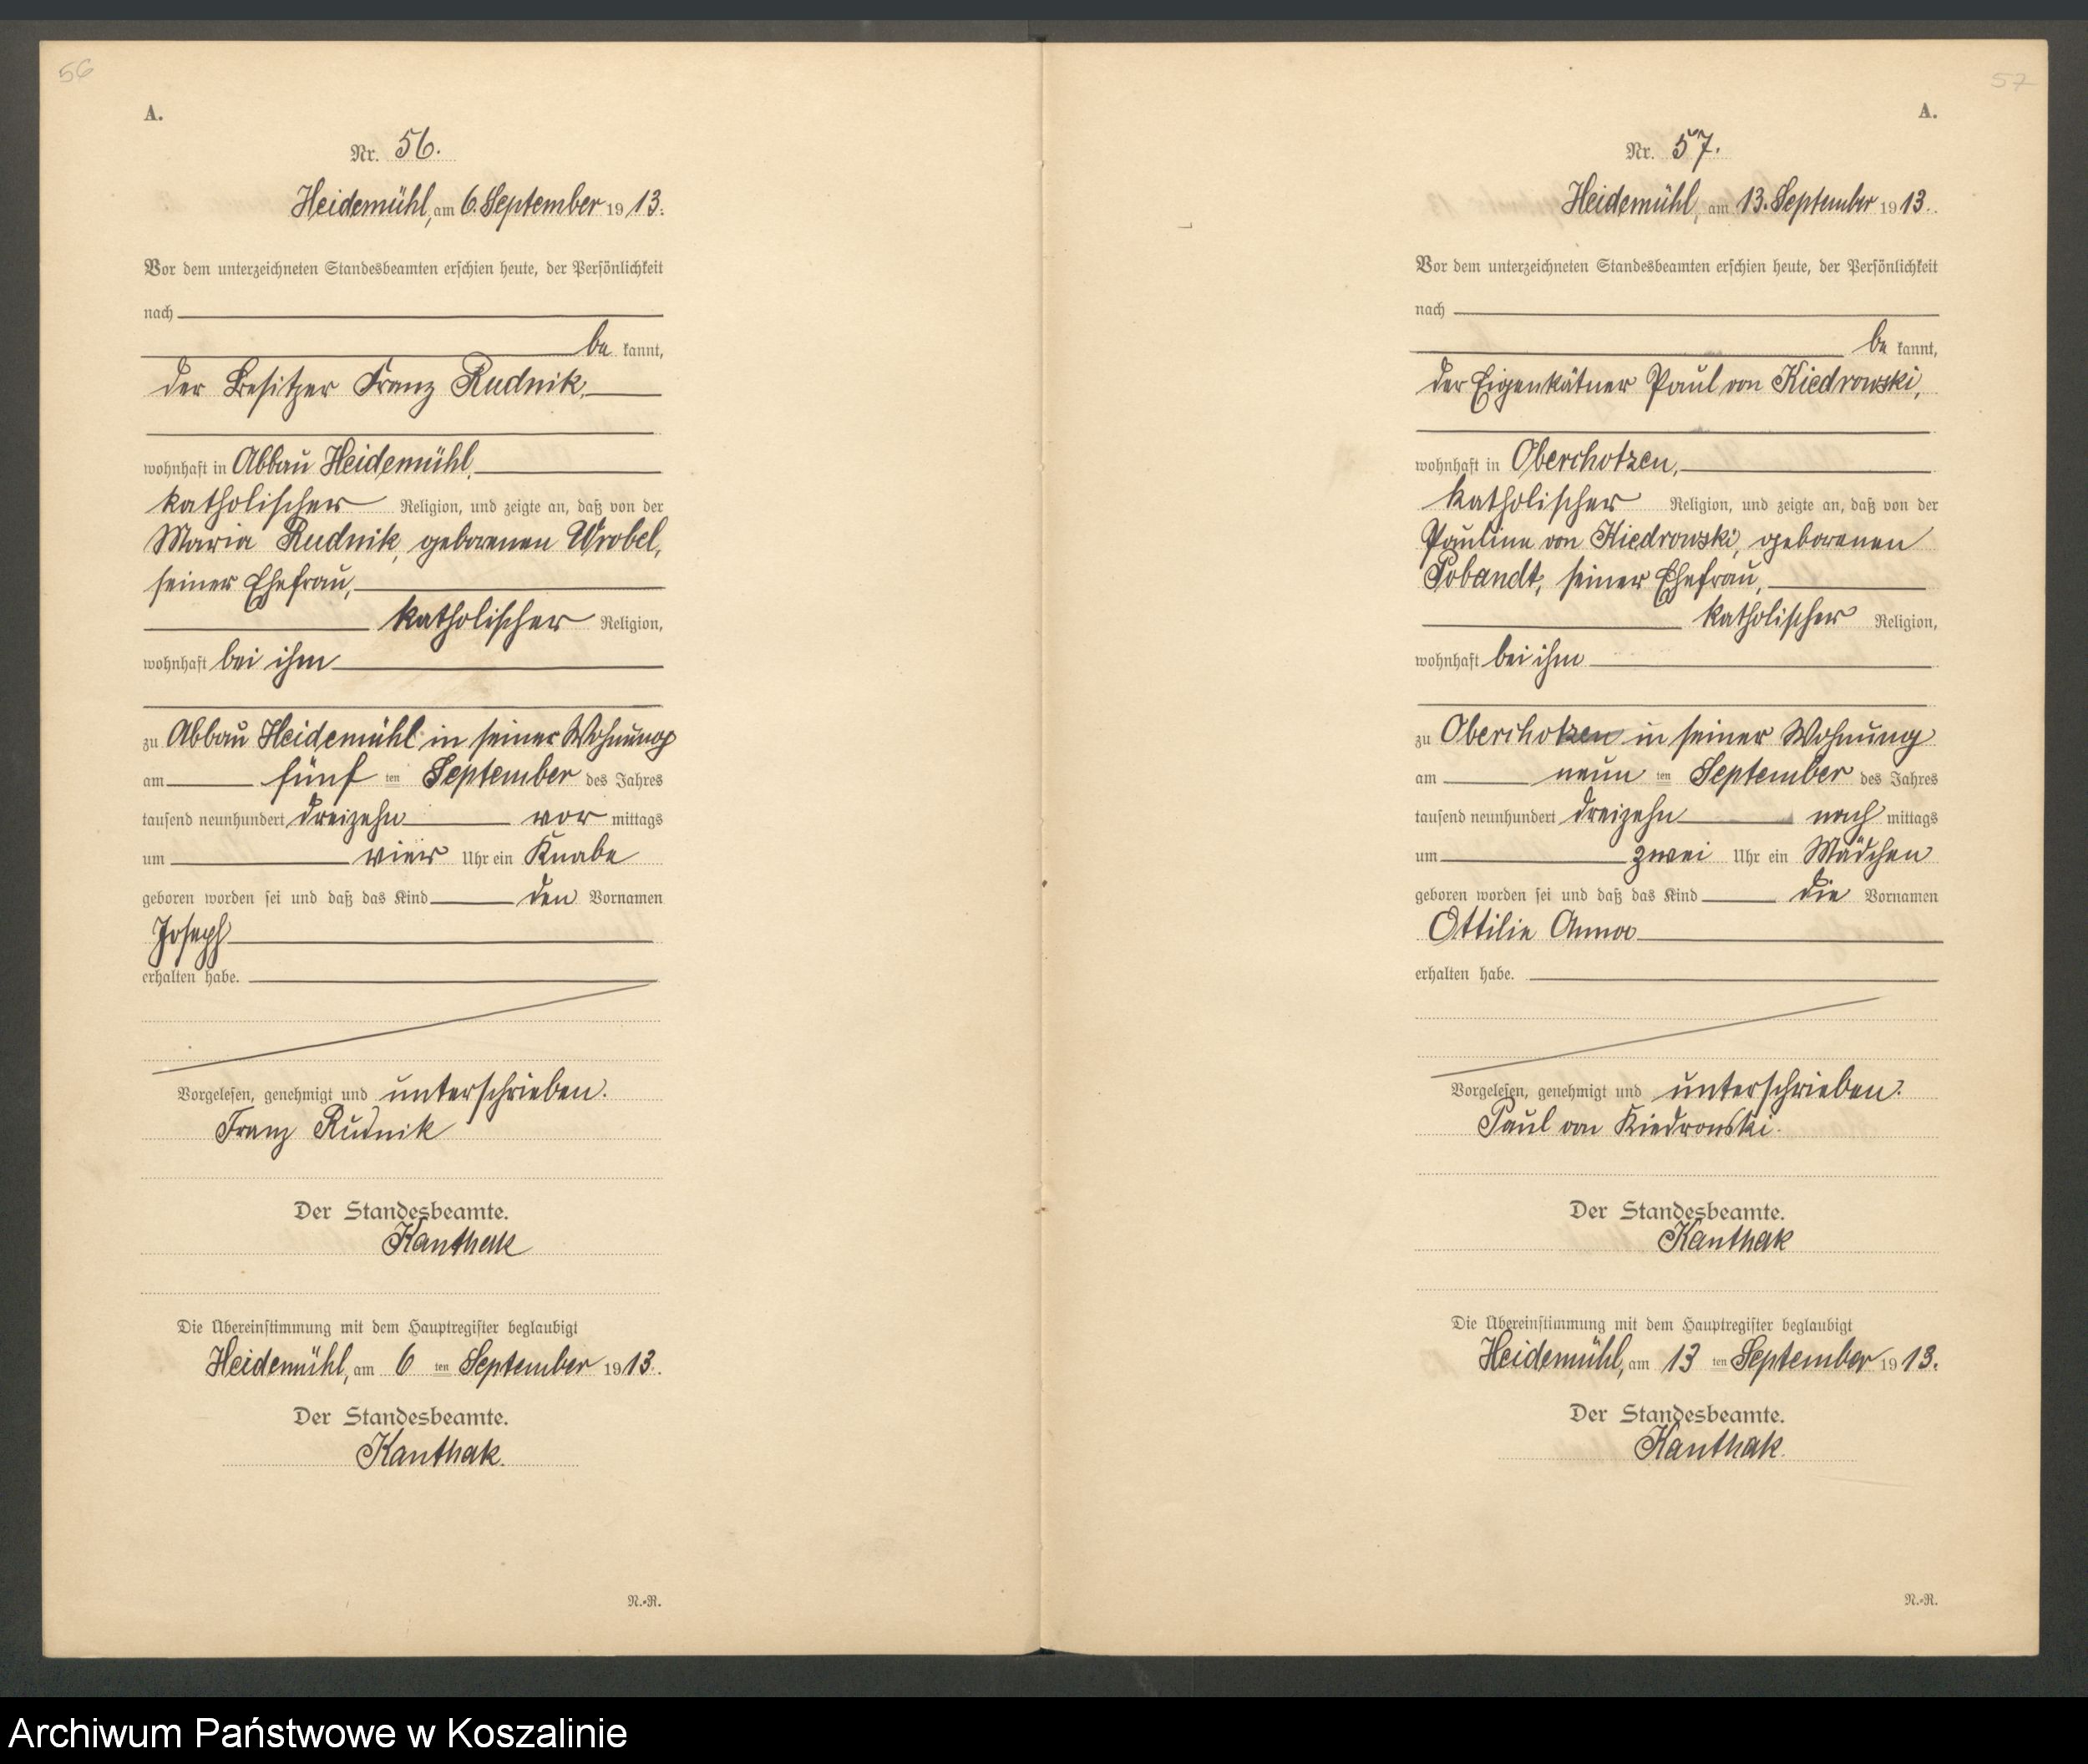 56
A.
Nr. 56.
Heidemühl, am 6. September 1913.
Vor dem unterzeichneten Standesbeamten erschien heute, der Persönlichkeit
nach
be kannt,
der Besitzer Franz Rudnik,
wohnhaft in Abbau Heidemühl,
katholischer Religion, und zeigte an, daß von der
Maria Rudnik, geborenen Wrobel,
seiner Ehefrau,
katholischer Religion,
wohnhaft bei ihm
zu Abbau Heidemühl in seiner Wohnung
am fünf ten September des Jahres
tausend neunhundert dreizehn vor mittags
um vier Uhr ein Knabe
geboren worden sei und daß das Kind den Vornamen
Joseph
erhalten habe.
Vorgelesen, genehmigt und unterschrieben.
Franz Rudnik
Der Standesbeamte.
Kanthak
Die Übereinstimmung mit dem Hauptregister beglaubigt
Heidemühl, am 6 ten September 1913.
Der Standesbeamte.
Kanthak.
N.-R.
57
A.
Nr. 57.
Heidemühl, am 13. September 1913.
Vor dem unterzeichneten Standesbeamten erschien heute, der Persönlichkeit
nach
be kannt,
der Eigenkätner Paul von Kiedrowski,
wohnhaft in Oberchotzen,
katholischer Religion, und zeigte an, daß von der
Pauline von Kiedrowski, geborenen
Pobandt, seiner Ehefrau,
katholischer Religion,
wohnhaft bei ihm
zu Oberchotzen in seiner Wohnung
am neun ten September des Jahres
tausend neunhundert dreizehn nach mittags
um zwei Uhr ein Mädchen
geboren worden sei und daß das Kind die Vornamen
Ottilie Anna
erhalten habe.
Vorgelesen, genehmigt und unterschrieben.
Paul von Kiedrowski.
Der Standesbeamte.
Kanthak
Die Übereinstimmung mit dem Hauptregister beglaubigt
Heidemühl, am 13 ten September 1913.
Der Standesbeamte.
Kanthak.
N.-R.
Archiwum Państwowe w Koszalinie